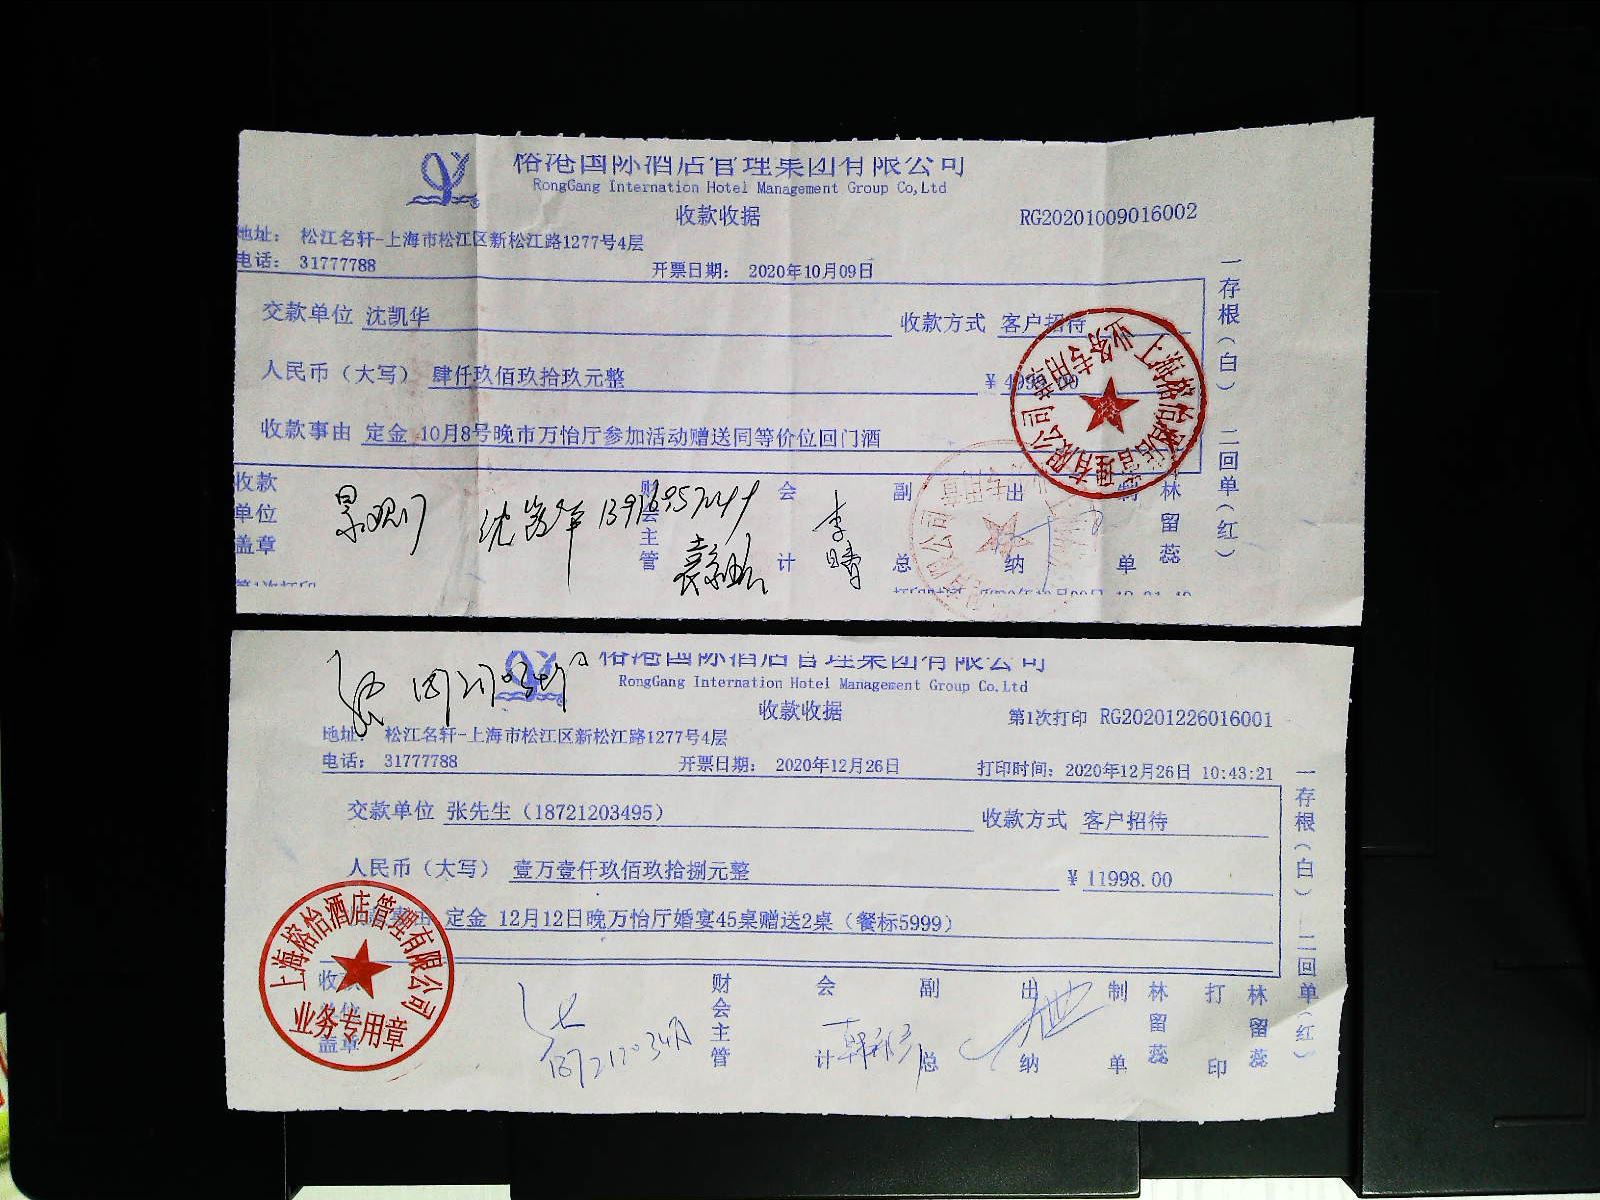 榕港国际酒店管理集团有限公司
RongGang Internation Hotel Management Group Co,Ltd
收款收据
RG20201009016002
地址： 松江名轩-上海市松江区新松江路1277号4层
电话： 31777788
开票日期： 2020年10月09日
交款单位 沈凯华
收款方式 客户招待
人民币（大写） 肆仟玖佰玖拾玖元整
收款事由 定金 10月8号晚市万怡厅参加活动赠送同等价位回门酒
收款单位盖章
财会主管
会计
副总
出纳
制单
林留蕊
李晴
一存根（白） 二回单（红）
业务专用章
榕港国际酒店管理集团有限公司
RongGang Internation Hotel Management Group Co.Ltd
收款收据
第1次打印 RG20201226016001
地址： 松江名轩-上海市松江区新松江路1277号4层
电话： 31777788
开票日期： 2020年12月26日
打印时间：2020年12月26日 10:43:21
交款单位 张先生（18721203495）
收款方式 客户招待
人民币（大写） 壹万壹仟玖佰玖拾捌元整
￥11998.00
定金 12月12日晚万怡厅婚宴45桌赠送2桌（餐标5999）
收款单位盖章
财会主管
会计
副总
出纳
制单
林留蕊
打印
林留蕊
一存根（白） 二回单（红）
上海榕怡酒店管理有限公司
业务专用章